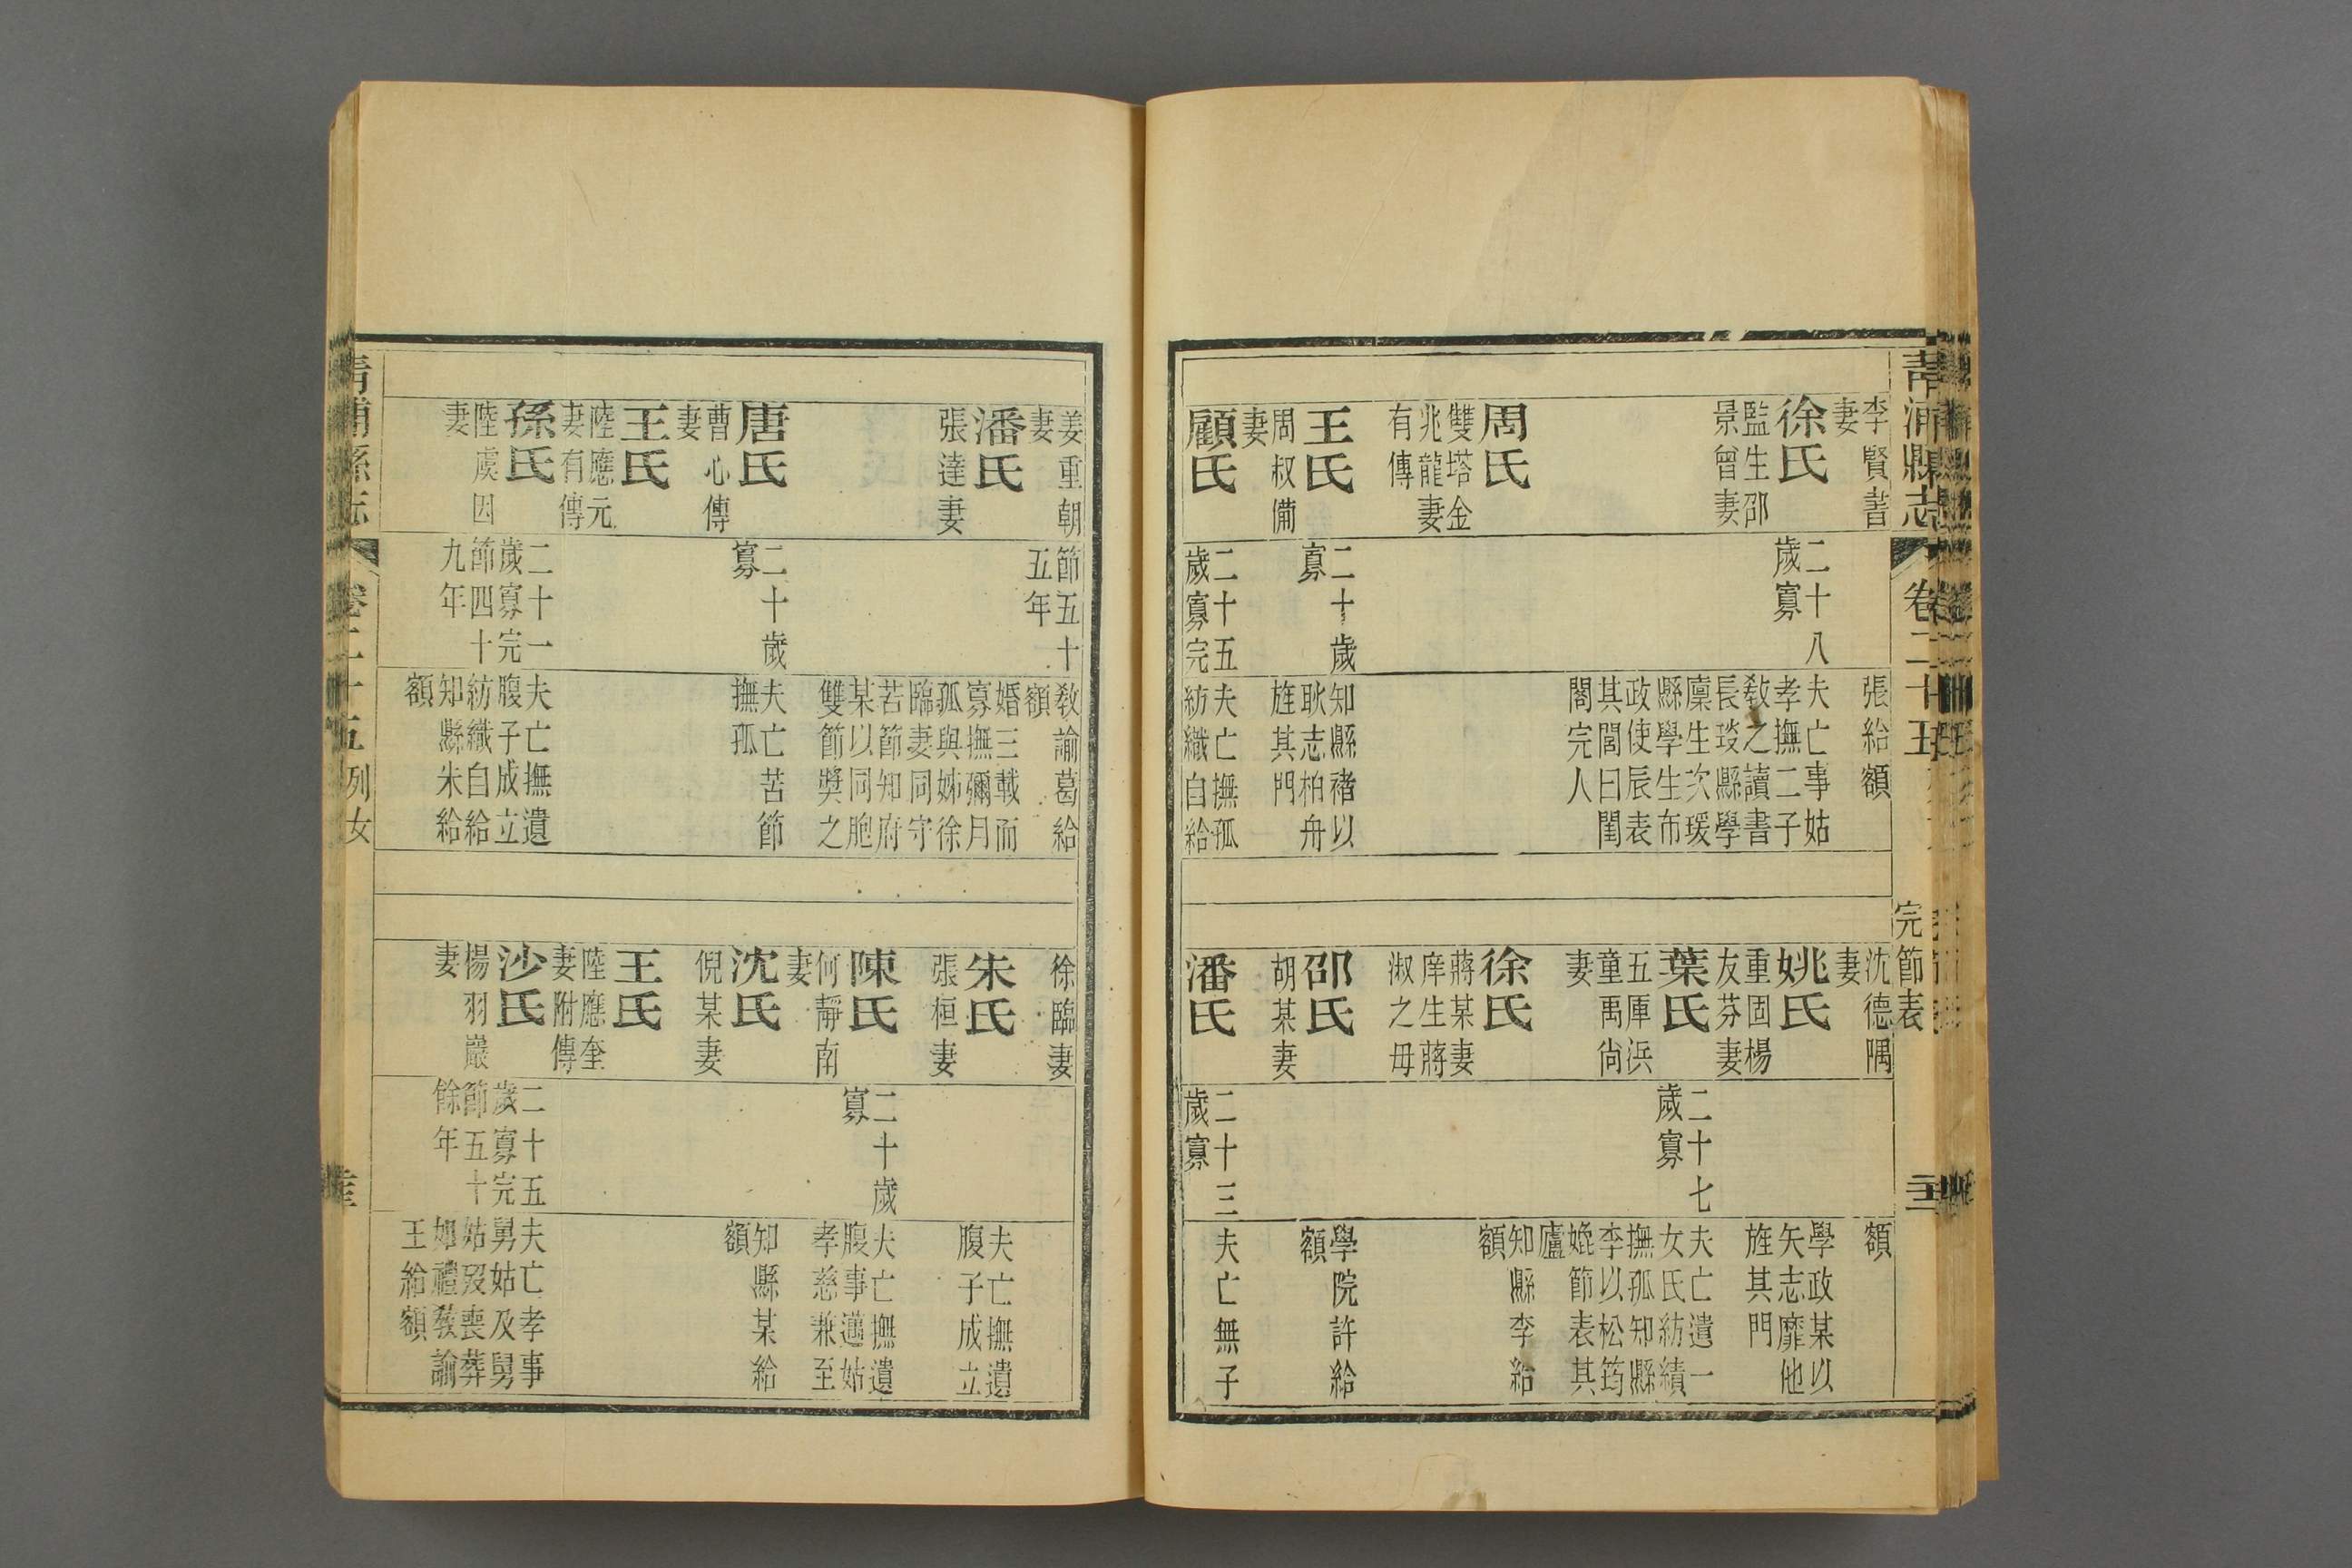 青浦縣志
卷二十五
完節表
李賢書
妻
徐氏
監生邵
景曾妻
周氏
雙塔金
兆龍妻
有傳
王氏
周叔備
妻
顧氏
二十八
歲寡
二十歲
寡
二十五
歲寡完
張給額
夫亡事姑
孝撫二子
教之讀書
長琰縣學
廩生次瑗
縣學生布
政使辰表
其閭曰閨
閤完人
知縣褚以
耿志柏舟
旌其門
夫亡撫孤
紡織自給
沈德隅
妻
姚氏
重固楊
友芬妻
葉氏
五厙浜
童禹尙
妻
徐氏
蔣某妻
庠生蔣
淑之母
邵氏
胡某妻
潘氏
二十七
歲寡
二十三
歲寡
額
學政某以
矢志靡他
旌其門
夫亡遺一
女氏紡績
撫孤知縣
李以松筠
媲節表其
廬
知縣李給
額
學院許給
額
夫亡無子
姜重朝
妻
潘氏
張達妻
唐氏
曹心傳
妻
王氏
陸應元
妻有傳
孫氏
陸虞因
妻
節五十
五年
二十歲
寡
二十一
歲寡完
節四十
九年
教諭葛給
額
婚三載而
寡撫彌月
孤與姊徐
臨妻同守
苦節知府
某以同胞
雙節獎之
夫亡苦節
撫孤
夫亡撫遺
腹子成立
紡織自給
知縣朱給
額
徐臨妻
朱氏
張桓妻
陳氏
何靜南
妻
沈氏
倪某妻
王氏
陸應奎
妻附傳
沙氏
楊羽巖
妻
二十歲
寡
二十五
歲寡完
節五十
餘年
夫亡撫遺
腹子成立
夫亡撫遺
腹事邁姑
孝慈兼至
知縣某給
額
夫亡孝事
舅姑及舅
姑歿喪葬
如禮教諭
王給額
青浦縣志
卷二十五
列女